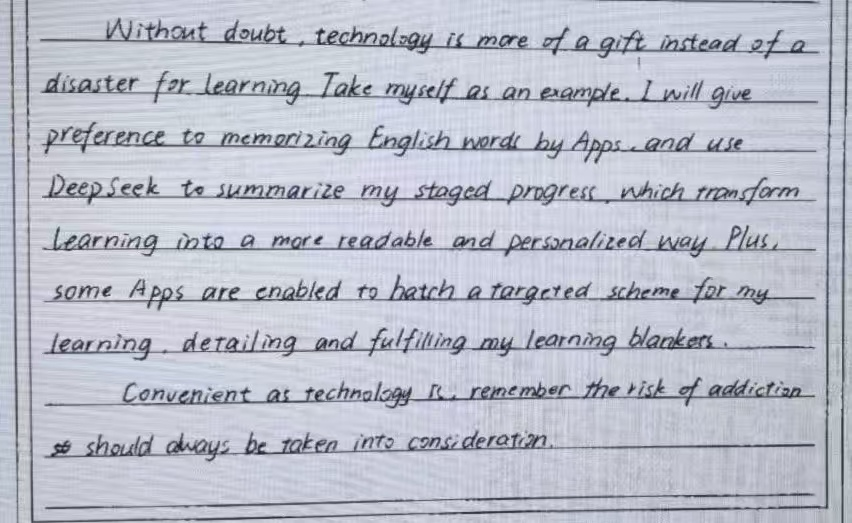 Without doubt, technology is more of a gift instead of a
disaster for learning. Take myself as an example. I will give
preference to memorizing English words by Apps, and use
DeepSeek to summarize my staged progress, which transform
learning into a more readable and personalized way. Plus,
some Apps are enabled to hatch a targeted scheme for my
learning, detailing and fulfilling my learning blankets.
Convenient as technology is, remember the risk of addiction
should always be taken into consideration.